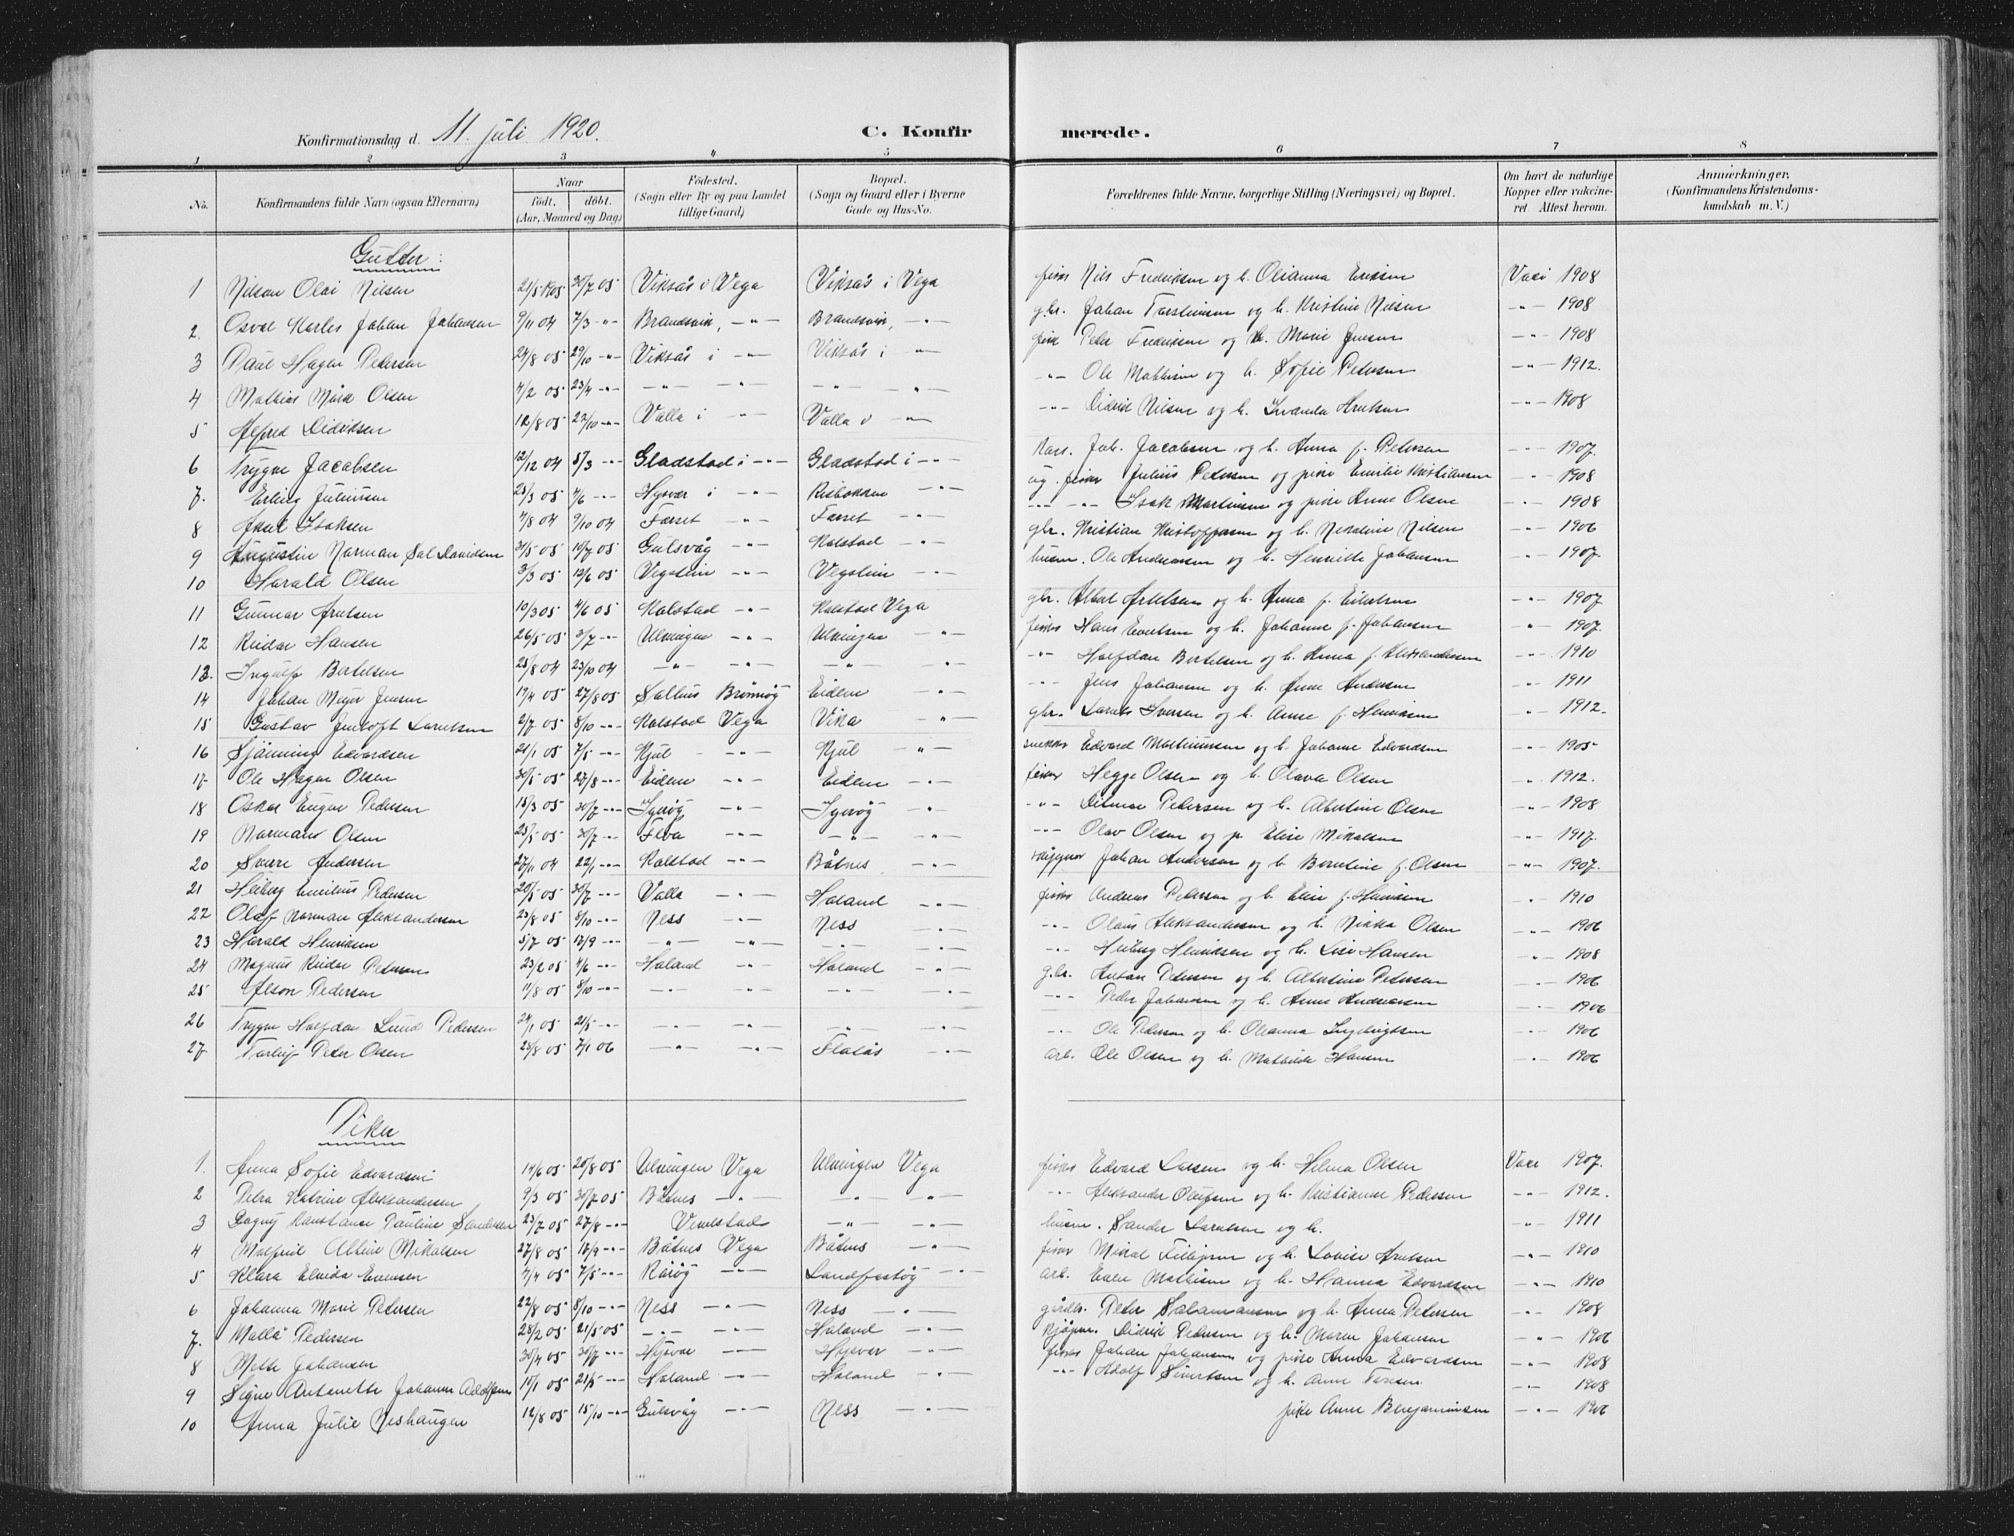 Konfirmationsdag d. 11. juli 1920. C. Konfirmerede.
1 2 3 4 5 6 7 8
No. Konfirmandens fulde Navn (ogsaa Efternavn) Naar født. døbt. (Aar, Maaned og Dag) Fødested. (Sogn eller By og paa Landet tillige Gaard) Bopæl. (Sogn og Gaard eller i Byerne Gade og Hus-No. Forældrenes fulde Navne, borgerlige Stilling (Næringsvei) og Bopæl. Om havt de naturlige Kopper eller vakcineret Attest herom. Anmærkninger. (Konfirmandens Kristendomskundskab m. V.)
Gutter:
1 Nilson Olai Nilsen 21/5 1905 30/7 05 Viksås i Vega Viksås i Vega fisker Nils Fredriksen og h. Olianna Eriksen Vaxi 1908
2. Osval Karles Johan Johansen 9/11 04 7/3 -"- Brandsvik, -"- Brandsvik, -"- gbr. Johan Torstensen og h. Kristine Nilsen -"- 1908
3 Paul Hagen Pedersen 24/8 05 29/10 -"- Viksås i -"- Viksås i -"- fisk Peder Fredriksen og h. Marie Jensen -"- 1908
4 Mathias Mørk Olsen 4/2 05 23/4 -"- -"- -"- -"- -"- -"- Ole Mathisen og h. Sofie Pedersen -"- 1912.
5 Alfred Didriksen 12/8 05 22/10 -"- Valla i -"- Valla i -"- -"- Didrik Nilsen og h. Ivanda Arntsen -"- 1908
6 Trygve Jacobsen 12/12 04 5/3 -"- Gladstad i -"- Gladstad i -"- Joh. Jacobsen og h. Anna f. Petersen -"- 1907.
7. Erling Juliussen 25/3 05 4/6 -"- Hysvær i -"- -"- ug. fisker Julius Petersen og pike Emilie Kristiansen -"- 1908
8 Aksel Isaksen 7/8 04 9/10 04 Farset -"- Farset -"- -"- -"- Isak Martinsen og pike Anne Olsen -"- 1908
9 Augustin Norman Sal Davidsen 31/5 05 10/7 05 Gulsvåg -"- Kolstad -"- gbr. Kristian Kristoffersen og h. Nikoline Nilsen -"- 1906
10 Harald Olsen 3/3 05 12/6 05 Vegstein -"- Vegstein -"- husm. Ole Andreassen og h. Henriette Johansen -"- 1907.
11 Gunnar Arntsen 10/3 05 4/6 05 Kolstad -"- Kolstad Vega gbr. og h. Anna f. -"- 1907
12 Reidar Hansen 26/5 05 3/7 -"- Ulvingen -"- Ulvingen -"- fisker Hans Evertsen og h. Johanne f. Johansen -"- 1907.
13. Ingulf Bertelsen 25/8 04 23/10 04 -"- -"- -"- -"- -"- Halfdan Bertelsen og h. Anna f. Aleksandersen -"- 1910
14 Johan Meyer Jensen 19/4 05 27/8 05 Salhus Brønnøy Eidem -"- -"- Jens Johansen og h. Anne Andersen -"- 1911
15 Gustav Larntsen 2/7 05 8/10 -"- Kolstad Vega Vika -"- gbr. Iversen og h. Anne f. Henriksen -"- 1912.
16 Sjønning Edvardsen 21/1 05 7/5 -"- Kjul -"- Kjul -"- snekker Edvard Mathiassen og h. Johanne Edvardsen -"- 1905
17 Ole Hagen Olsen 30/5 05 27/8 -"- Eidem -"- Eidem -"- fisker Hegge Olsen og h. Olava Olsen -"- 1912.
18 Oskar Eugen Pedersen 15/3 05 30/7 -"- Igerøy -"- Igerøy -"- -"- Ditmar Pedersen og h. Albertine Olsen -"- 1908
19 Normann Olsen 25/5 05 30/7 -"- Floa -"- -"- -"- -"- Olav Olsen og p. Elise Mikalsen -"- 1917.
20 Sverre Andersen 27/11 04 22/1 -"- Kolstad -"- Båtnes -"- Johan Andersen og h. Berntine f. Olsen -"- 1907.
21 Heiberg Emilius Pedersen 20/5 05 30/7 -"- Valla -"- Holand -"- fisker Andreas Pedersen og h. Elise f. Henriksen -"- 1910
22 Olaf Norman Aleksandersen 23/8 05 8/10 -"- Ness -"- Ness -"- -"- Olaus Aleksandersen og h. Nikka Olsen -"- 1906
23 Harald Henriksen 5/7 05 12/9 -"- -"- -"- -"- -"- -"- Heiberg Henriksen og h. Lise Hansen -"- 1908
24 Magnus Reidar Pedersen 23/2 05 4/6 -"- Holand -"- Holand -"- gbr. Anton Petersen og h. Albertine Petersen -"- 1906
25 Alson Pedersen 11/8 05 8/10 -"- -"- -"- -"- -"- -"- Peder Johansen og h. Anne Andreassen -"- 1906
26 Trygve Halfdan Lund Pedersen 24/1 05 21/5 -"- -"- -"- -"- -"- -"- Ole Pedersen og h. Oleanna Ingebrigtsen -"- 1906
27. Torleif Peder Olsen 28/8 05 7/1 06 -"- -"- Flatås -"- arb. Ole Olsen og h. Mathilde Hansen -"- 1906
Piker
1. Anna Sofie Edvardsen 14/6 05 20/8 05 Ulvingen Vega Ulvingen Vega fisker Edvard Larsen og h. Hilma Olsen Vaxi 1907.
2 Petra Katrine Aleksandersen 9/3 05 30/7 05 Båtnes -"- -"- -"- -"- Aleksander Olufsen og h. Kristianne Pedersen -"- 1912.
3 Dagny Konstanse Pauline Sandersen 23/7 05 27/8 -"- Vennestad -"- -"- husm. Sander Larntsen og h. -"- 1911
4 Malfrid Albine Mikalsen 27/8 05 18/9 -"- Båtnes Vega Båtnes -"- fisker Mikal og h. Lovise Arntsen -"- 1910
5 Klara Elvida Evensen 7/4 05 7/5 -"- Rørøy -"- Landfastøy -"- arb. Even Mathisen og h. Hanna Edvardsen -"- 1910
6 Johanna Marie Petersen 22/8 05 8/10 -"- Ness -"- Ness -"- gårdbr. Peder Salamonsen og h. Anna Petersen -"- 1908
7. Malla Pedersen 28/2 05 21/5 05 -"- -"- Holand -"- kjøpm. Didrik Pedersen og h. Maren Johansen -"- 1906
8 Mette Johansen 30/4 05 30/7 -"- Hysvær -"- Hysvær -"- fisker Johan Johansen og pike Anna Edvardsen -"- 1908
9 Signe Antonette Johanne Adolfsen 15/1 05 21/5 -"- Holand -"- Holand -"- -"- Adolf Sivertsen og h. Anne -"- 1908
10 Anna Julie Neshaugen 12/8 05 15/10 -"- Gulsvåg -"- Ness -"- pike Anne Benjaminsen -"- 1906